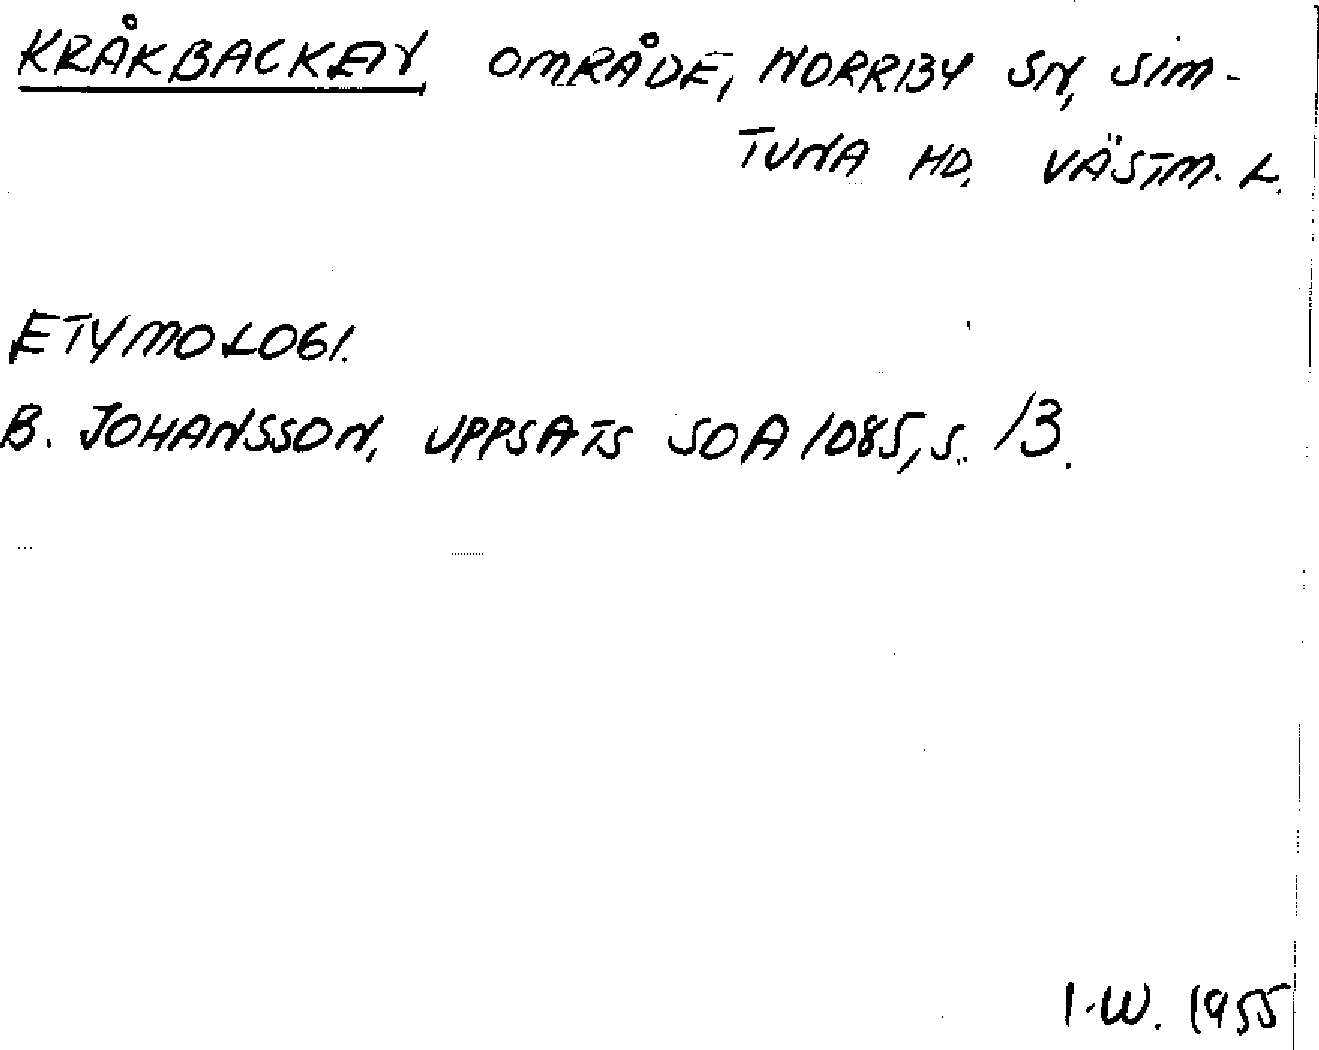 KRÅKBACKEN, OMRÅDE, NORRBY SN, SIM-
TUNA HD. VÄSTM. L.
ETYMOLOGI.
B. JOHANSSON, UPPSATS SOA 1085, S. 13.
I.W. 1955